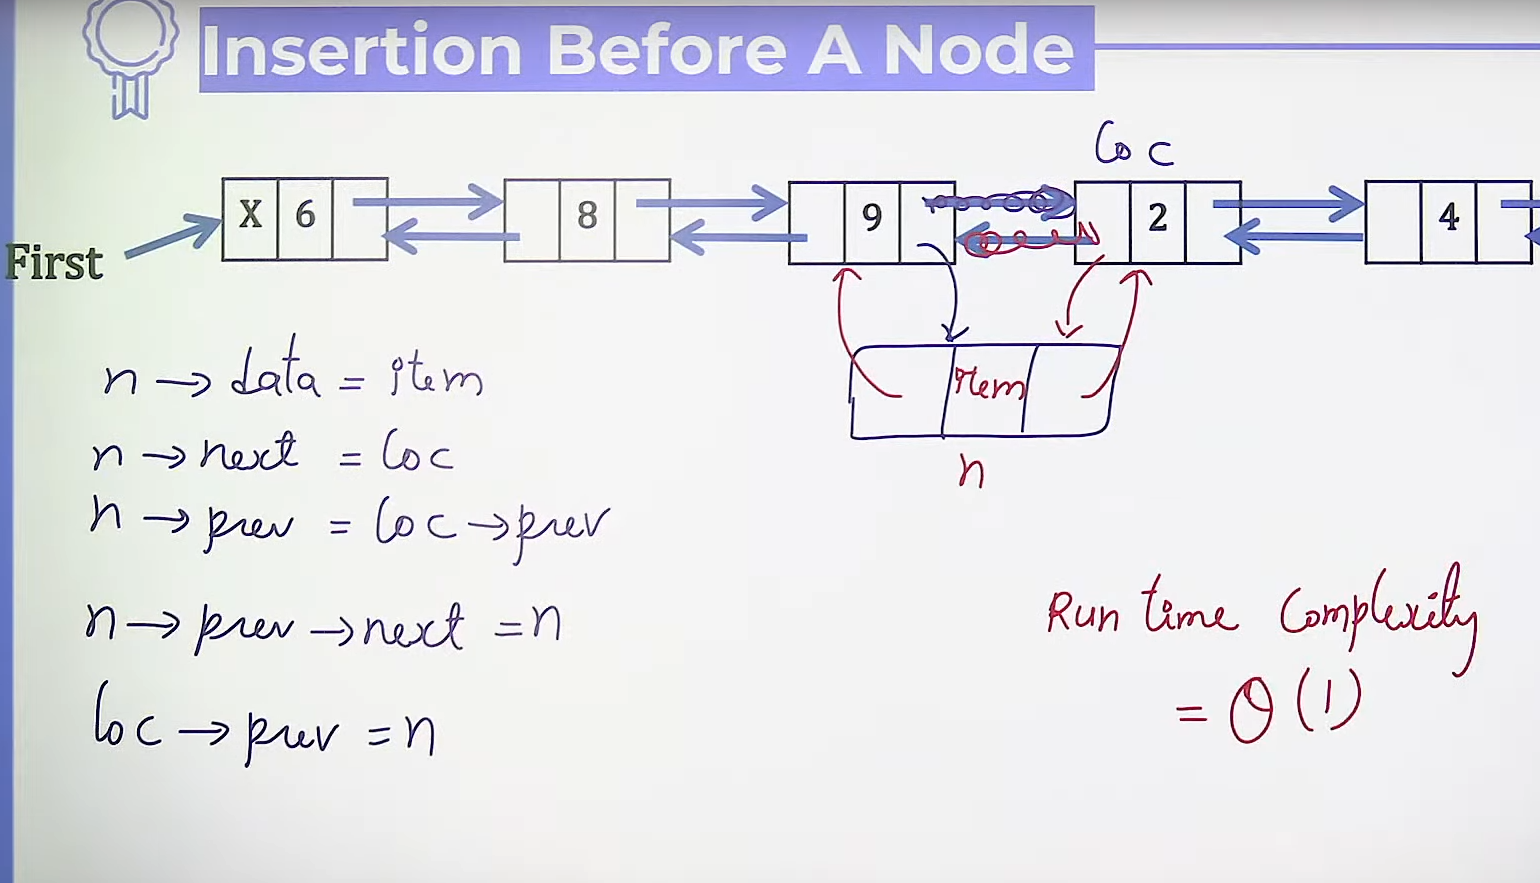 Insertion Before A Node
Loc
X 6 8 9 2 4
First
item
n
n → data = item
n → next = Loc
n → prev = Loc → prev
n → prev → next = n
Loc → prev = n
Run time Complexity
= O(1)